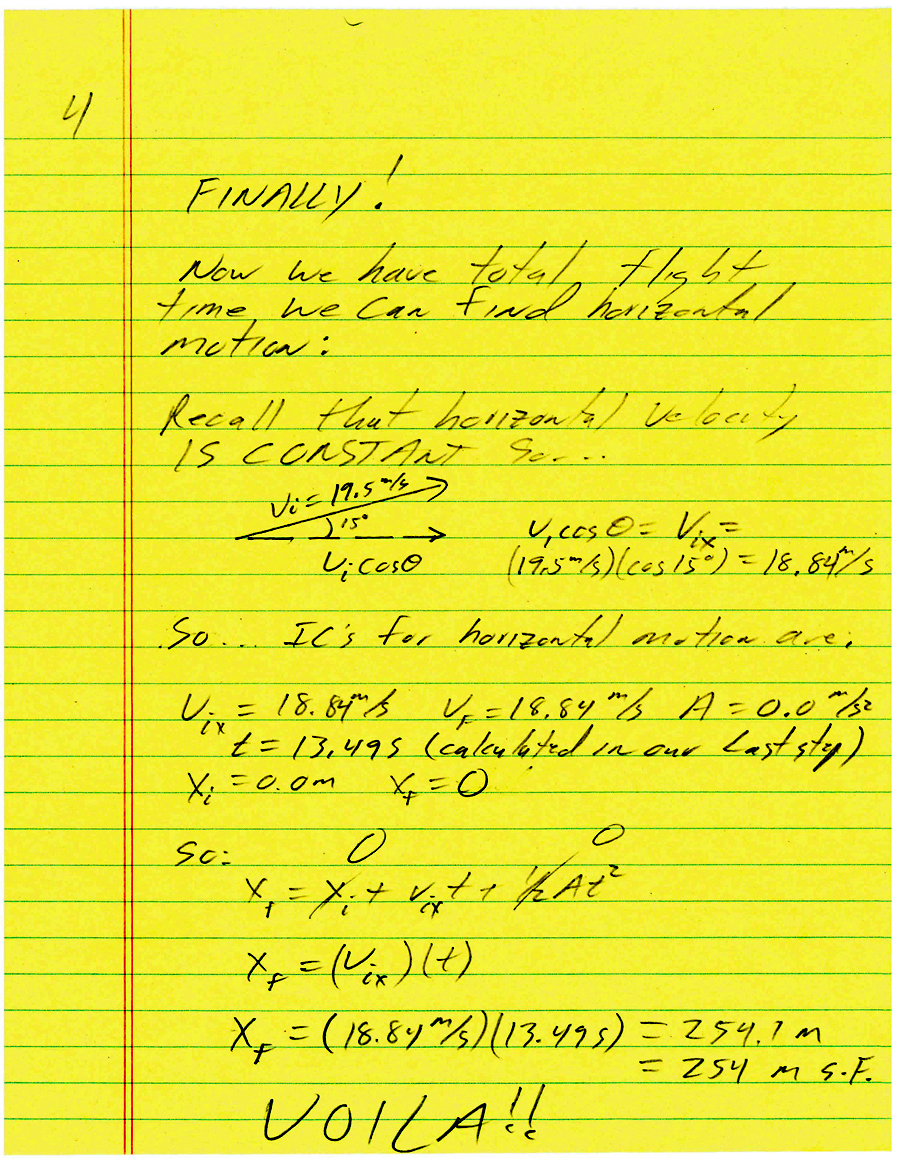 4
FINALLY!
Now we have total flight
time we can find horizontal
motion:
Recall that horizontal velocity
IS CONSTANT So....
Vi = 19.5 m/s
15°
Vi cosθ
Vi cosθ = Vix =
(19.5 m/s)(cos 15°) = 18.84 m/s
So... IC's for horizontal motion are,
Vix = 18.84 m/s VF = 18.84 m/s A = 0.0 m/s²
t = 13.49 s (calculated in our last step)
Xi = 0.0 m Xf = 0
so: 0 0
Xf = Xi + Vix t + 1/2 At²
Xf = (Vix)(t)
XF = (18.84 m/s)(13.49 s) = 254.1 m
= 254 m S.F.
VOILA!!